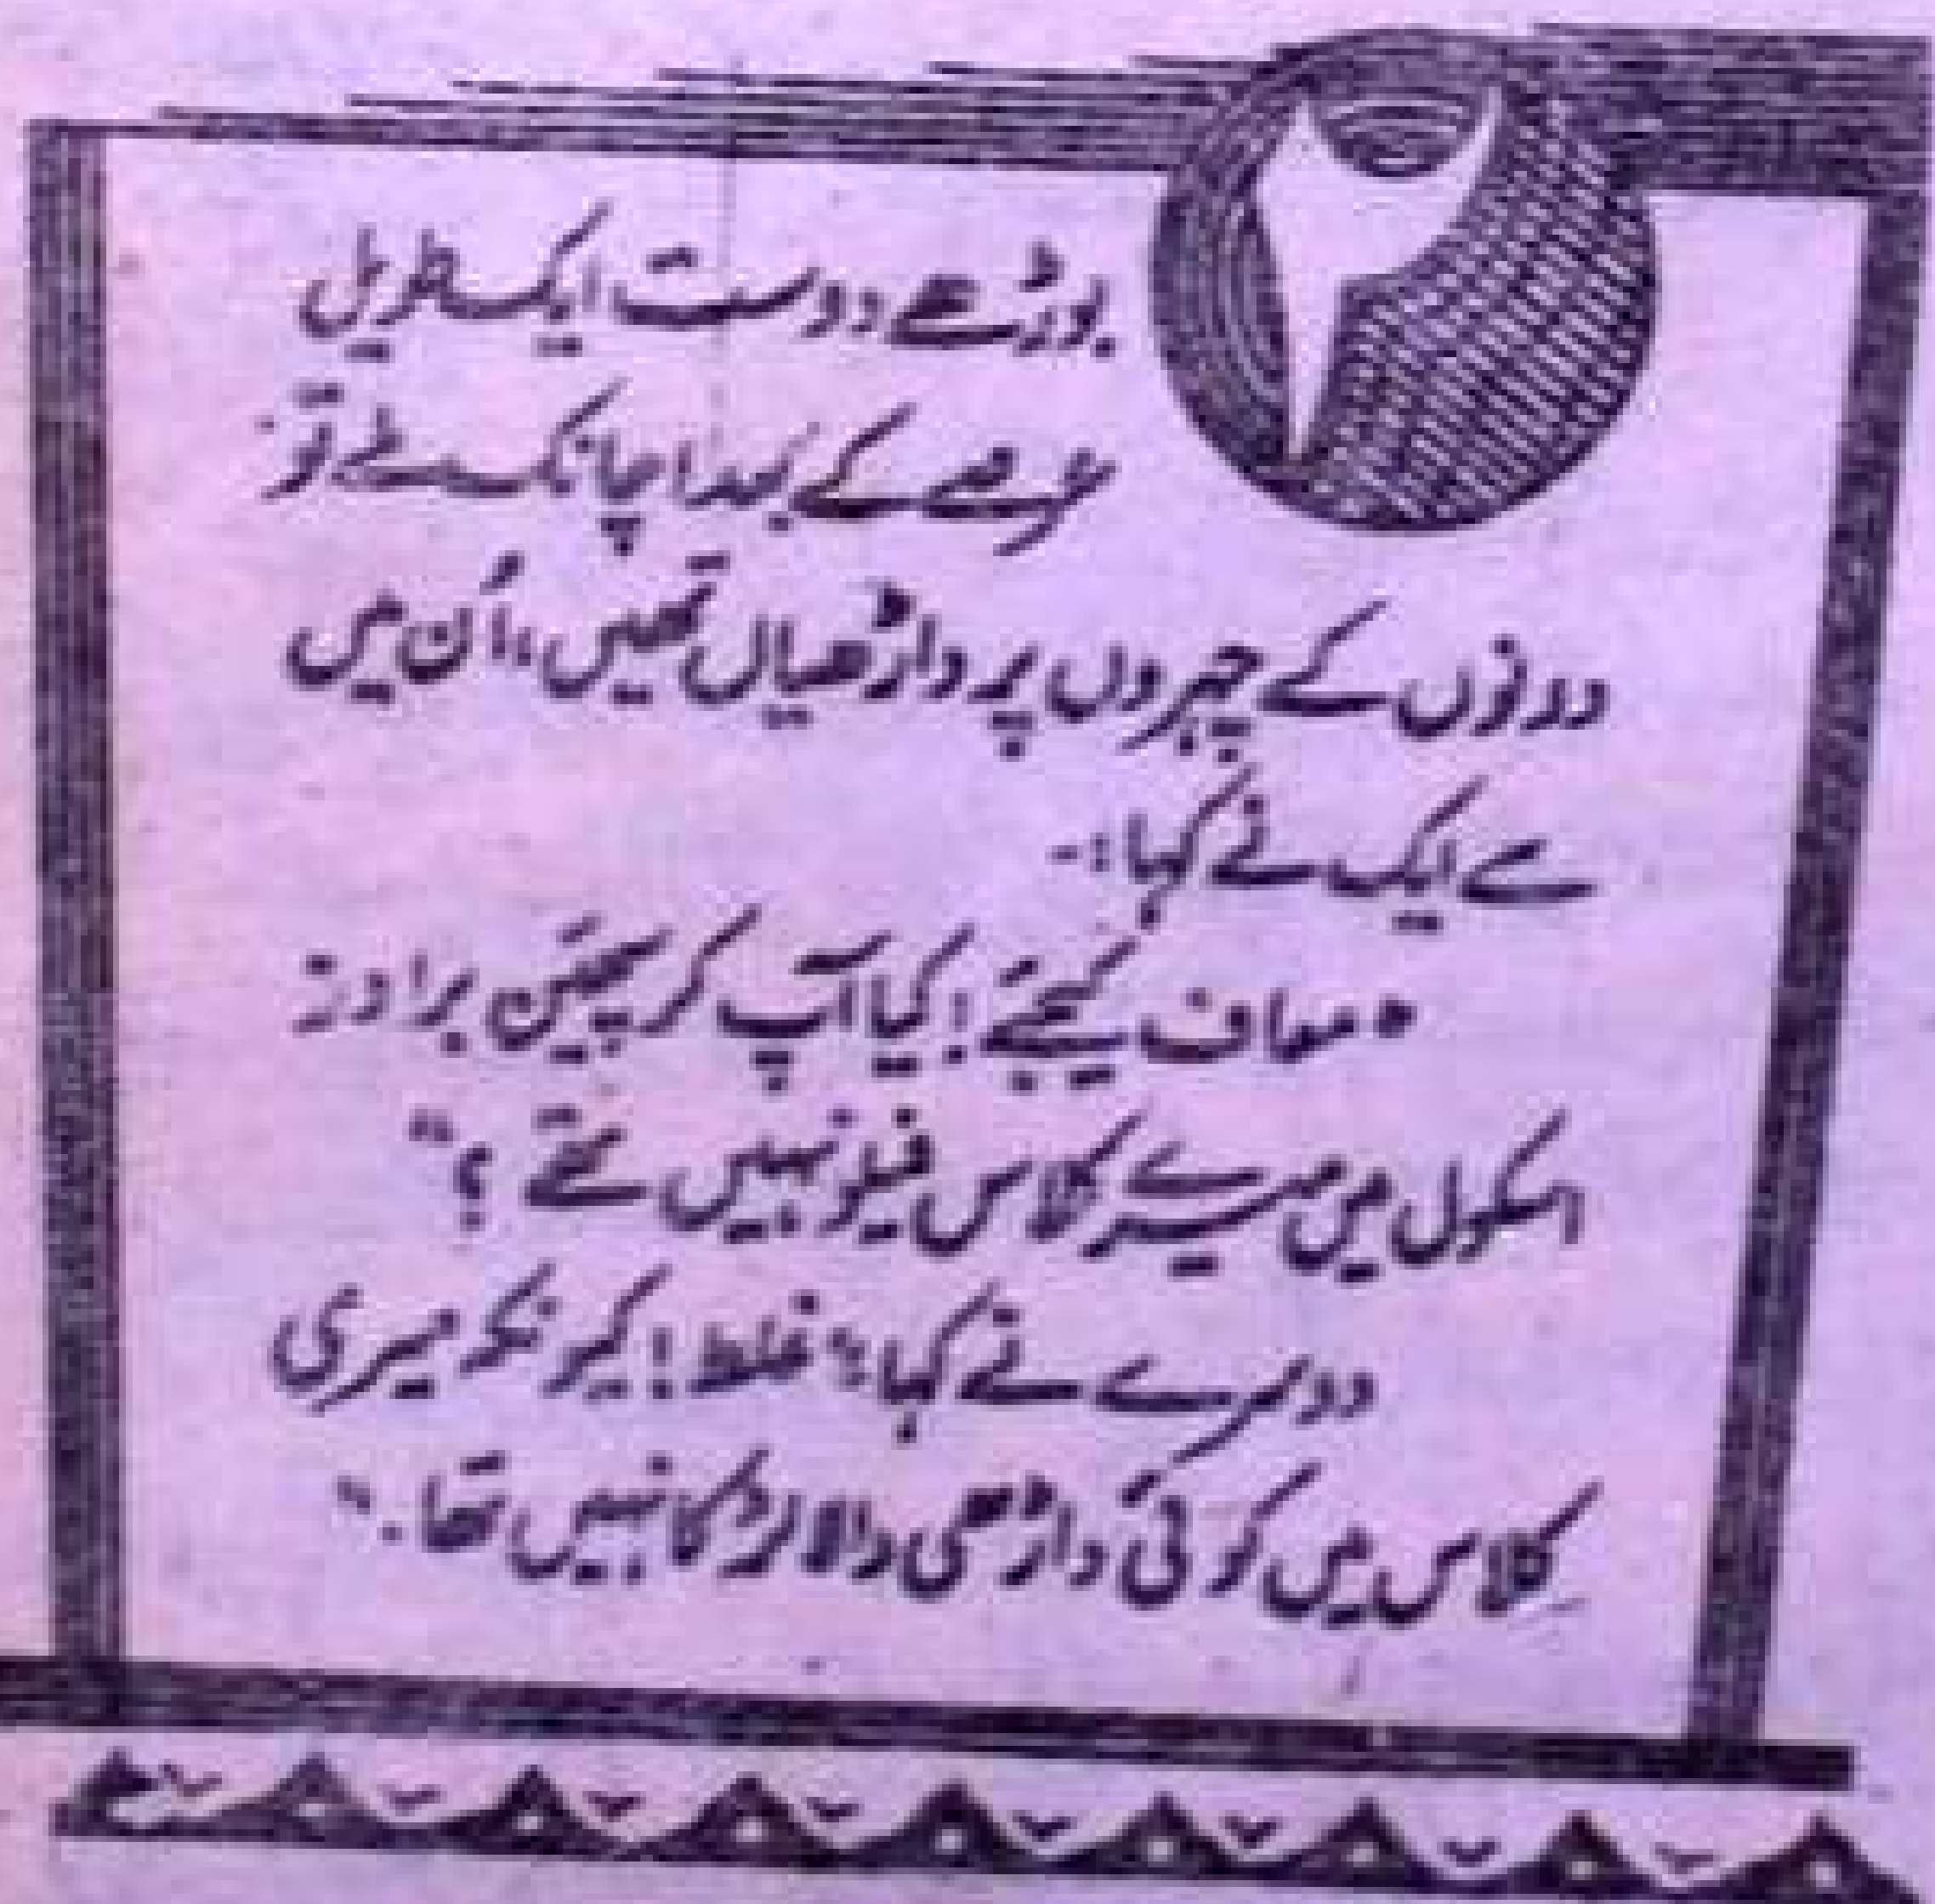 ۲
بوڑھے دوست ایک طویل
عرصے کے بعد اچانک ملے تو
دونوں کے چہروں پر داڑھیاں تھیں، اُن میں
سے ایک نے کہا :-
"معاف کیجئے ! کیا آپ کرسچین برادرز
اسکول میں میرے کلاس فیلو نہیں تھے ؟"
دوسرے نے کہا " غلط ! کیونکہ میری
کلاس میں کوئی داڑھی والا لڑکا نہیں تھا ۔"